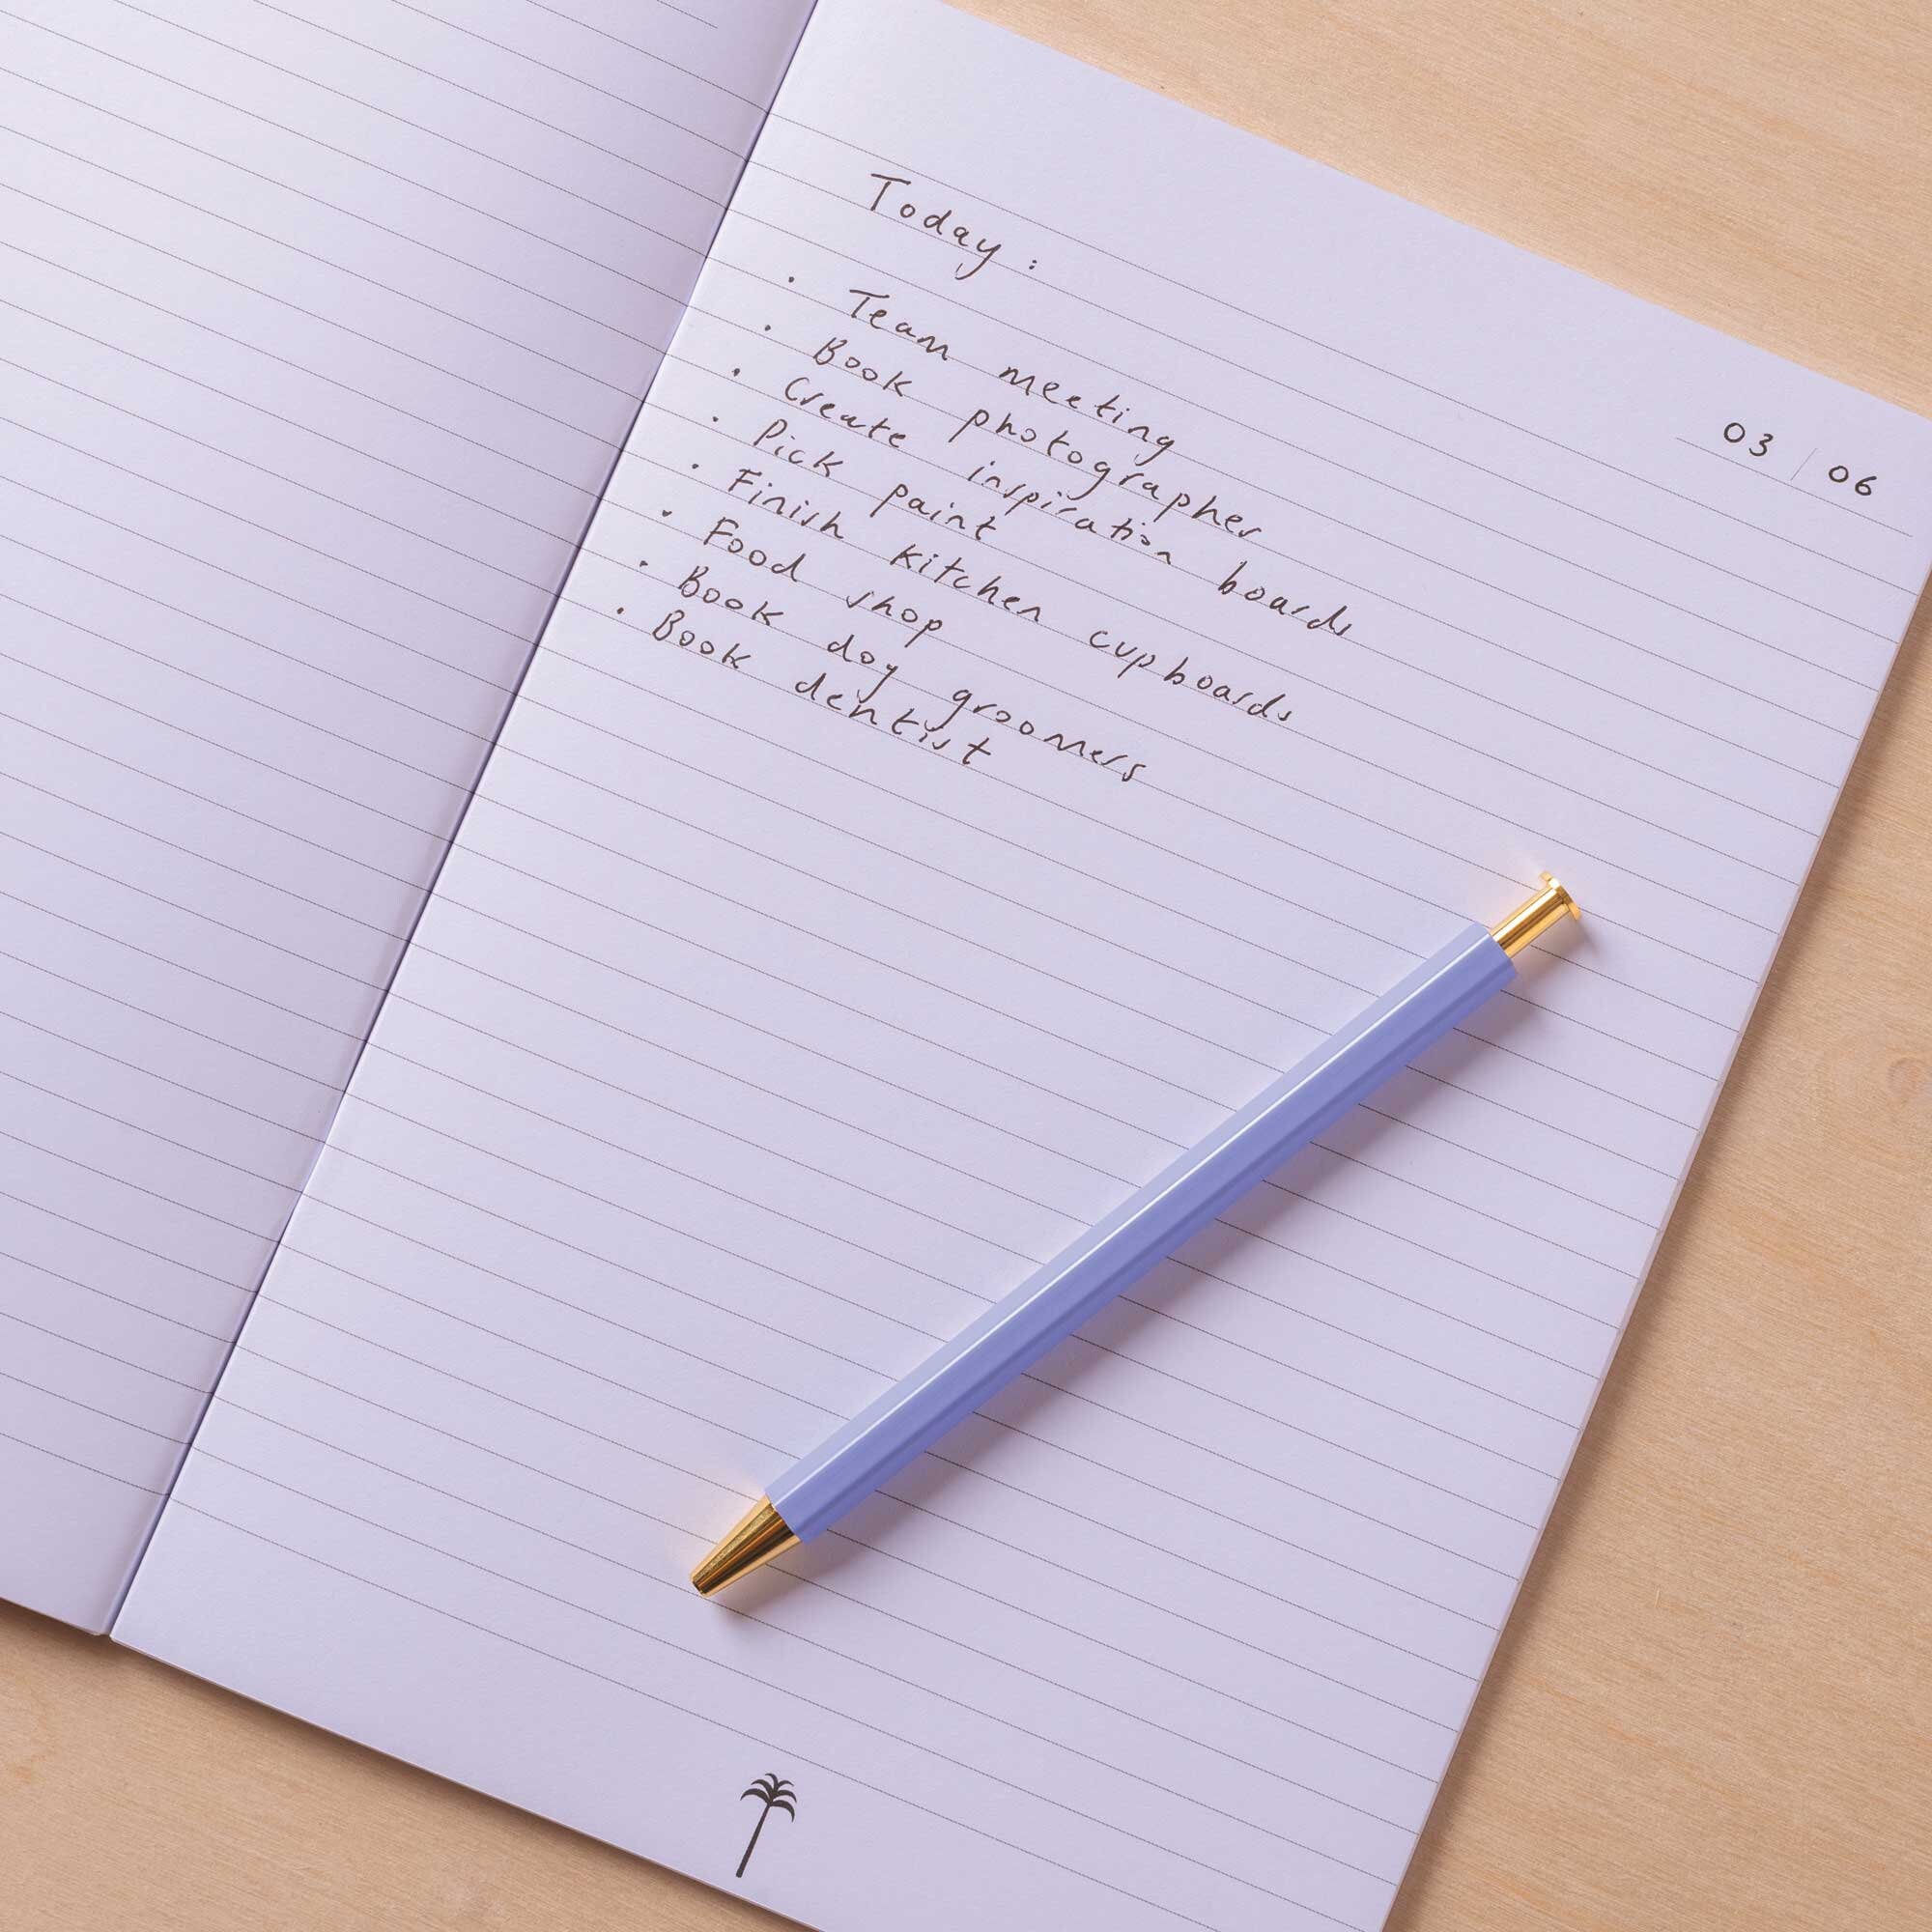 03 / 06
Today :
· Team meeting
· Book photographer
· Create inspiration boards
· Pick paint
· Finish kitchen cupboards
· Food shop
· Book dog groomers
· Book dentist